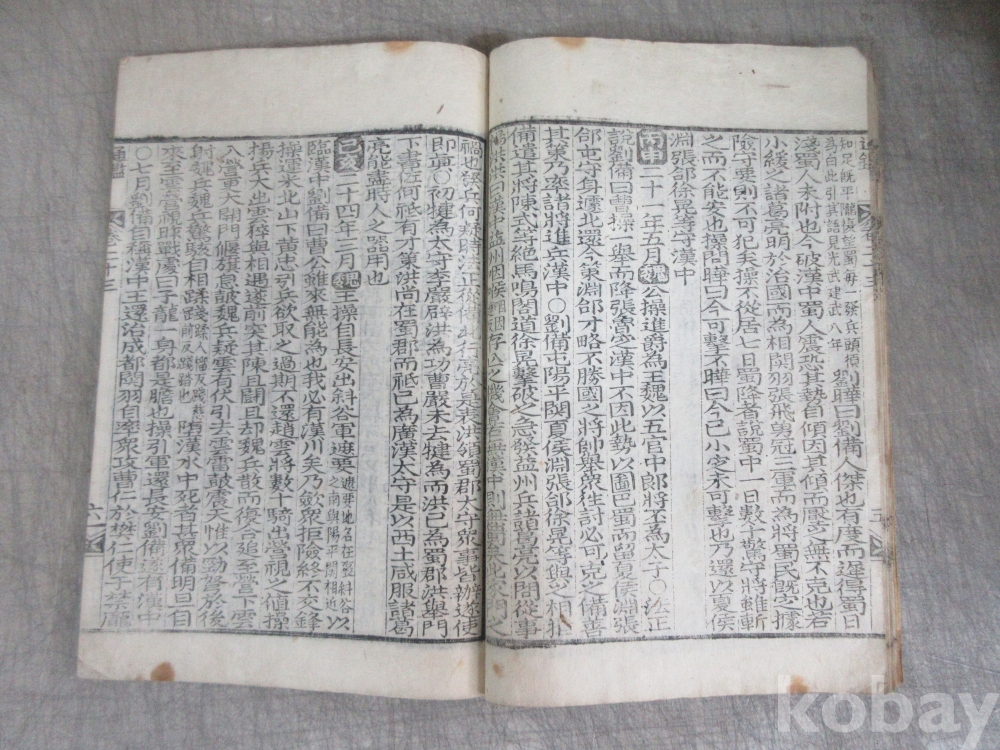 知足既平隴復望蜀每一發兵頭須
爲白此引其語見光武建武八年
劉曄曰劉備人傑也有度而遲得蜀日
淺蜀人未附也今破漢中蜀人震恐其勢自傾因其傾而壓之無不克也若
小緩之諸葛亮明於治國而為相關羽張飛勇冠三軍而為將蜀民既定據
險守要則不可犯矣操不從居七日蜀降者說蜀中一日數十驚守將雖斬
之而不能安也操問曄曰今可擊不曄曰今已小定未可擊也乃還以夏侯
淵張郃徐晃等守漢中
丙申二十一年五月魏公操進爵為王魏以五官中郎將丕為太子○法正
說劉備曰曹操一舉而降張魯定漢中不因此勢以圖巴蜀而留夏侯淵張
郃屯守身遽北還今策淵郃才略不勝國之將帥舉衆往討必可克之備善
其策乃率諸將進兵漢中○劉備屯陽平関夏侯淵張郃徐晃等與之相拒
備遣其將陳式等絕馬鳴閣道徐晃擊破之急發益州兵諸葛亮以問從事
楊洪洪曰漢中益州咽喉存亡之機會若無漢中則無蜀矣此家門之
禍也發兵何疑時法正從備北行亮於是表洪領蜀郡太守衆事皆辦遂使
即眞○初犍為太守李嚴辟洪為功曹嚴未去犍為而洪已為蜀郡洪舉門
下書佐何祗有才策洪尚在蜀郡而祗已為廣漢太守是以西土咸服諸葛
亮能盡時人之器用也
己亥二十四年三月魏王操自長安出斜谷軍遮要
遮要地名在
斜谷
之南與陽平関相近
以
臨漢中劉備曰曹公雖來無能為也我必有漢川矣乃斂衆拒險終不交鋒
操運米北山下黃忠引兵欲取之過期不還趙雲將數十騎出營視之値操
揚兵大出雲猝與相遇遂前突其陳且鬪且却魏兵散而復合追至營下雲
入營更大開門偃旗息鼓魏兵疑雲有伏引去雲雷鼓震天惟以勁弩於後
射魏兵魏兵驚駭自相蹂踐
墮漢水中死者甚衆備明旦自
來至雲營視昨戰處曰子龍一身都是膽也操引軍還長安劉備遂有漢中
○七月劉備自稱漢中王還治成都關羽自率衆攻曹仁於樊仁使于禁龐
通鑑
卷二十三
六
kobay